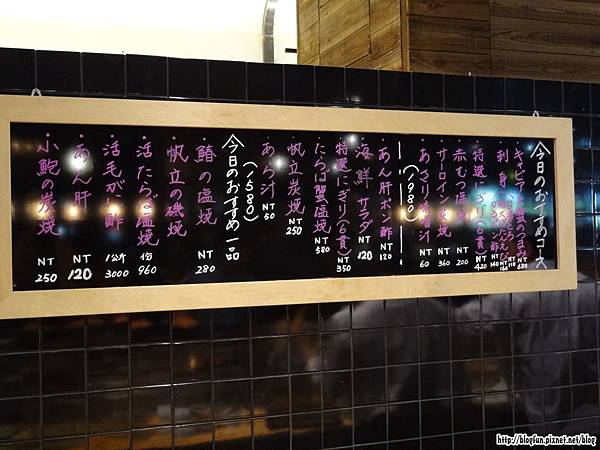 今日のおすすめコース
キャビアと蟹のつまみ NT 680
刺身
特選にぎり(6貫) NT 420
赤むつ塩焼 NT 200
サーロイン炭焼 NT 360
あさり味噌汁 NT 60
(1980)
あん肝ポン酢 NT 120
海鮮サラダ NT 120
特選にぎり(6貫) NT 350
たらば蟹塩焼 NT 580
帆立炭焼 NT 250
あら汁 NT 60
(1580)
今日のおすすめ一品
鰆の塩焼 NT 280
帆立の磯焼
活たらば塩焼 960
活毛がに酢 1公斤 3000
あん肝 NT 120
小鮑の炭焼 NT 250
http://blogfun.pixnet.net/blog